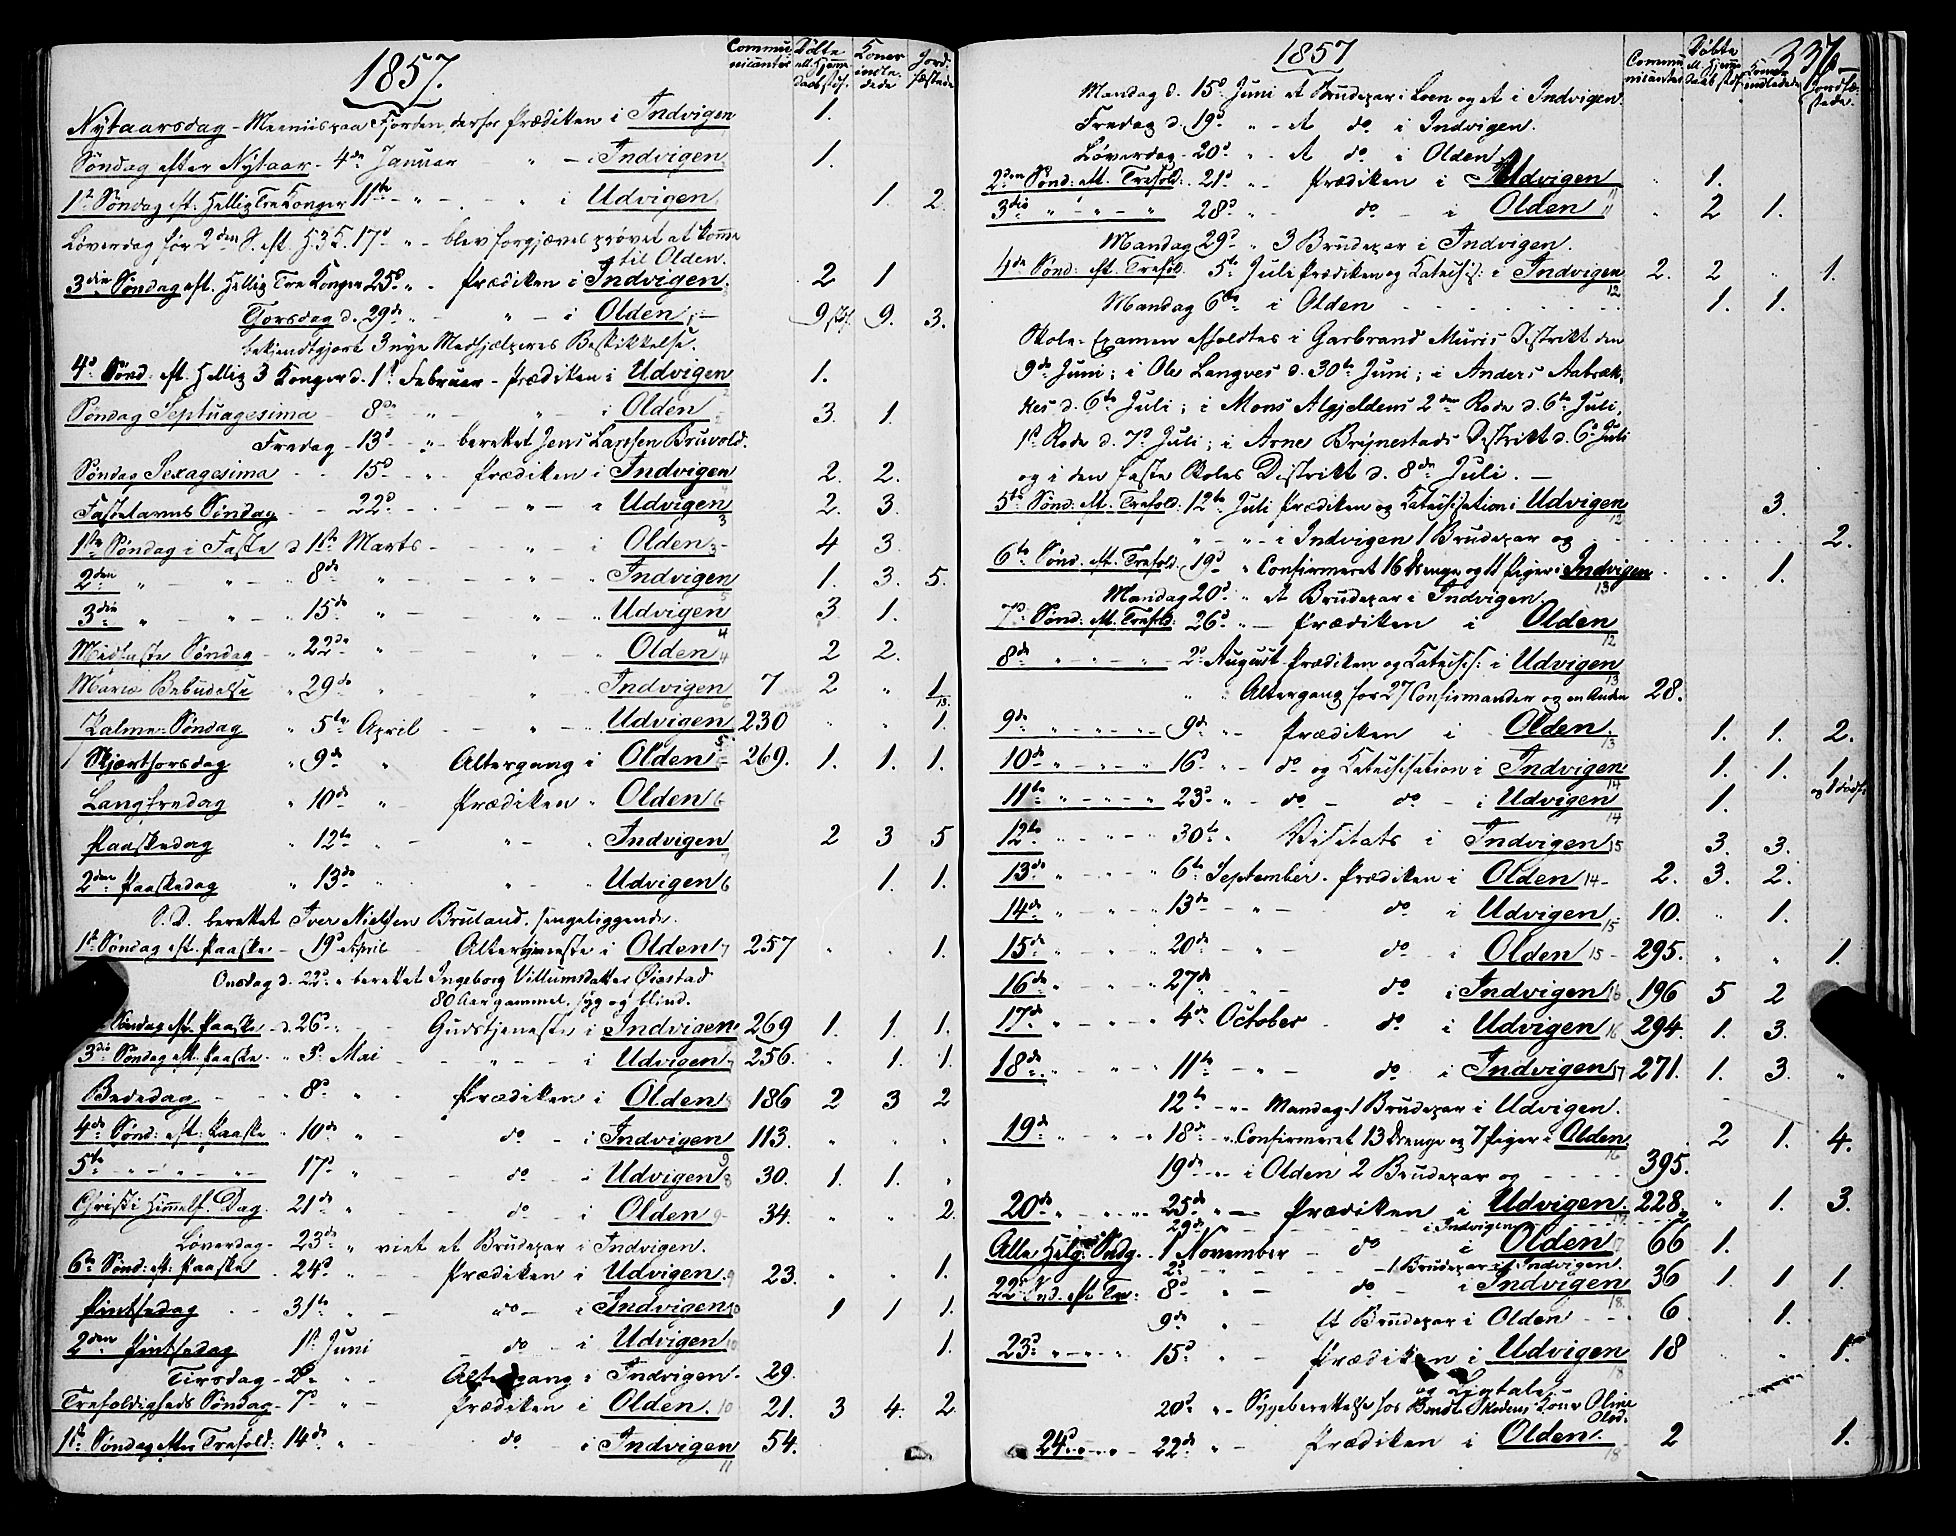 1857.
Commu nicanter
Døbte el. Hjemme daab stdf.
Koner indle. dede
Jord. fæstede
Nytaarsdag - Meeniis paa Fjorden, derfor Prædiken i Indvigen 1.
Søndag efter Nytaar - 4de Januar - " - i Indvigen 1.
1st Søndag eft. Hellig Tre Konger 11te - " - " - i Udvigen 1. 2.
Løverdag før 2den S. eft. H. 3 K. 17d " - blev forgjæves prøvet at komme
til Olden.
3die Søndag eft. Hellig Tre Konger 25d " - Prædiken i Indvigen. 2 1
Torsdag d. 29de " - " - i Olden 9 stdf. 9. 3.
bekjendtgjort 3 nye Medhjælperes Beskikkelse.
4d Sønd. eft. Hellig 3 Konger d. 1st Februar - Prædiken i Udvigen 1.
Søndag Septuagesima - 8de " - " - i Olden 3. 1.
Fredag - 13d - " berettet Jens Larssen Bruvold.
Søndag Sexagesima - 15d - " - Prædiken i Indvigen 2. 2.
Fastelavns Søndag - 22d - " - " Udvigen 2. 3.
1ste Søndag i Faste d. 1ste Marts - " - i Olden 4 3.
2den " - " - " 8de " - " - Indvigen 1. 3. 5.
3die " - " - " 15de " - " - " Udvigen 3 1.
Midfaste Søndag - " 22de " - " - " Olden 2 2.
Mariæ Bebudelse " 29de " - " Indvigen 7 2 " 1
Palme-Søndag " 5te April - " - " Udvigen 230 " " 1.
Skjærthorsdag " 9de " Altergang i Olden 269. 1. 1. 1.
Langfredag " 10de " Prædiken " Olden 6
Paaskedag " 12te " - " - " Indvigen 2 3 5
2den Paaskedag " 13de " " - " Udvigen 6 1. 1.
S. D. berettet Iver Nielsen Bruland, sengeliggende.
1st Søndag eft. Paaske - 19d April - Altertjeneste i Olden 7 257 " " 1.
Onsdag d. 22d " berettet Ingeborg Villumsdatter Øiestad
80 Aar gammel, syg og blind.
Søndag eft. Paaske - d. 26d " Gudstjeneste i Indvigen 269 1. 1. 1.
3die Søndag eft. Paaske - " 3d Mai - " - " - i Udvigen 256. " 1. 1.
Bededag - " 8d " - Prædiken i Olden 186 2 3 2
4de Sønd: eft: Paaske " 10de " - do - i Indvigen 113. " " "
5te " - " - " 17d " - do - " Udvigen 8 30. 1. 1. "
Christi Himmelf. Dag. 21de " - do - i Olden 9 34. " " 2.
Løverdag - 23de " viet et Brudepar i Indvigen.
6te Sønd: eft: Paaske - 24d " - Prædiken i Udvigen. 9 23. " " 1.
Pintsedag - " 31te " - do - i Indvigen 10 1 1 1.
2den Pintsedag 1st Juni - do - i Udvigen 10 1.
Tirsdag - 2d " - Altergang i Indvigen. 29.
Trefoldigheds Søndag - 7d " - Prædiken i Olden. 10 21. 3 4. 2.
1ste Søndag efter Trefold: 14de " - do - i Indvigen 11 54.
1857
337.
Commu nicanter
Døbte el. Hjemme daab stdf.
Koner indledede
Jordfæ- stede.
Mandag d. 15d Juni et Brudepar i Loen og et i Indvigen.
Fredag d. 19d " - Et do i Indvigen.
Løverdag - 20d " - Et do i Olden.
2den Sønd: eft. Trefold: 21d " - Prædiken i Udvigen 11 " 1.
3die " - " - " 28d " - do - i Olden 11 " 2 1.
Mandag 29d " 3 Brudepar i Indvigen.
4de Sønd: eft. Trefold. 5te Juli Prædiken og Katechis: i Indvigen 12 2. 2 " 1.
Mandag 6te i Olden - - - 1. 1.
Skole-Examen afholdtes i Garbrand Muris Distrikt den
9de Juni; i Ole Langves d. 30te Juni; i Anders Aabræk-
kes d. 6te Juli; i Mons Algjeldens 2den Rode d. 6te Juli,
1ste Rode d. 7d Juli; i Arne Brynestads Distrikt d. 6d Juli
og i den faste Skoles Distrikt d. 8de Juli. -
5te Sønd: eft. Trefold. 12te Juli Prædiken og Katechisation i Udvigen 12 3.
" - " - i Indvigen 1 Brudepar og - - - 2.
6te Sønd. eft. Trefold. 19d " Confirmeret 16 Drenge og 11 Piger i Indvigen 13 1.
Mandag 20d " et Brudepar i Indvigen.
7d Sønd: eft. Trefold: 26d " - Prædiken i Olden 12
8de " - " - " 2d August Prædiken og Katechis: i Udvigen 13
" " Altergang for 27 Confirmander og en Anden 28.
9de " - " - " 9de " - Prædiken i Olden. 13 1. 1. 2.
10de " - " - " 16d " - do og Katechisation i Indvigen 14 1. 1. 1
11te " - " - " 23d " - do - do - i Udvigen 14 1. og 1 dødf.
12te " - " - " 30te " Visitats i Indvigen 15 3. 3.
13de " - " - " 6te September - Prædiken i Olden 14 2. 3. 2.
14de " - " - " 13de - " - do i Udvigen 15 10. " 1.
15de " - " - " 20de - " - do i Olden 15 295. " " 1.
16de " - " - " 27de - do i Indvigen 16 196 5 2
17de " - " - " 4de October - do i Udvigen 16 294. 1. 3.
18de " - " - " 11te - " - do i Indvigen 17 271. 1. 3. "
12te - " - Mandag 1 Brudepar i Udvigen.
19de " - " - " 18de " Confirmeret 13 Drenge og 7 Piger i Olden. 16 2 1. 4.
19de " - i Olden 2 Brudepar og - - - 395.
20de " - " - " 25de " - Prædiken i Udvigen. 17 228 " 1. 3.
29de - - - i Indvigen
Alle Helg: Sndg. - 1 November - do i Olden 17 66 1.
2d - - - 1 Brudepar i Indvigen.
22d Snd. eft. Tre: 8d " - do - i Indvigen 18. 36 1. 1 1.
9de " - Et Brudepar i Olden - - 6. 1.
23d " - " - " 15d " - Prædiken i Udvigen 18 18 " " 1.
og Ligtale. -
20d " - Sygeberettelse hos Bendt Skedens Kone Oline Olsd.
24d " - " - 22de " - Prædiken i Olden. 18 2 1.